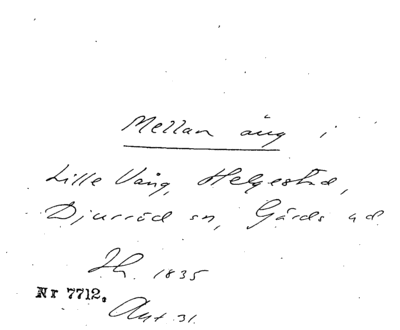 Mellan äng i
Lille Vång, Helgestad,
Djurröd sn, Gärds hd
Jh. 1835
Nr 7712.
Akt 31.